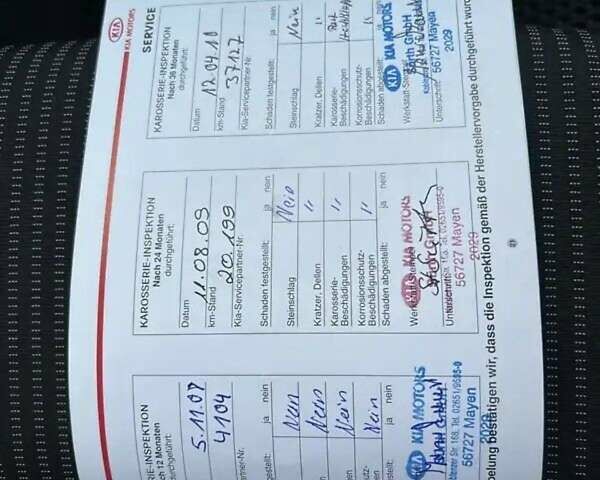 KIA
KIA MOTORS
SERVICE
E-INSPEKTION
ch 12 Monaten
durchgeführt:
5.11.07
4104
artner-Nr.
gestellt: ja nein
Nein
Nein
Nein
Nein
gestellt: ja nein
KIA MOTORS
56727 Mayen
2029
KAROSSERIE-INSPEKTION
Nach 24 Monaten
durchgeführt:
Datum
11.08.09
km-Stand
20.199
Kia-Servicepartner-Nr.
Schaden festgestellt: ja nein
Steinschlag Nein
Kratzer, Dellen "
Karosserie-
Beschädigungen "
Korrosionsschutz-
Beschädigungen "
Schaden abgestellt: ja nein
KIA KIA MOTORS
56727 Mayen
2029
KAROSSERIE-INSPEKTION
Nach 36 Monaten
durchgeführt:
Datum
12.04.10
km-Stand
37127
Kia-Servicepartner-Nr.
Schaden festgestellt: ja nein
Steinschlag Nein
Kratzer, Dellen "
Karosserie-
Beschädigungen
Korrosionsschutz-
Beschädigungen "
Schaden abgestellt: ja nein
KIA KIA MOTORS
GmbH
56727 Mayen
2029
Unterschrift
pelung bestätigen wir, dass die Inspektion gemäß der Herstellervorgabe durchgeführt wur